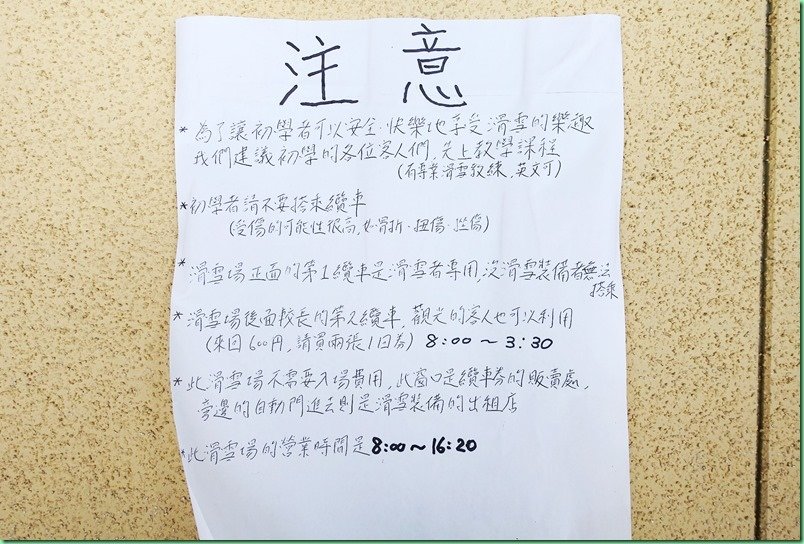 注意
* 為了讓初學者可以安全·快樂地享受滑雪的樂趣
我們建議初學的各位客人們,先上教學課程
(有專業滑雪教練,英文可)
* 初學者請不要搭乘纜車
(受傷的可能性很高,如骨折·扭傷·挫傷)
* 滑雪場正面的第1纜車是滑雪者專用,沒滑雪裝備者無法
搭乘
* 滑雪場後面較長的第2纜車,觀光的客人也可以利用
(來回600円,請買兩張1日券) 8:00~3:30
* 此滑雪場不需要入場費用,此窗口是纜車券的販賣處,
旁邊的自動門進去則是滑雪裝備的出租店
* 此滑雪場的營業時間是8:00~16:20